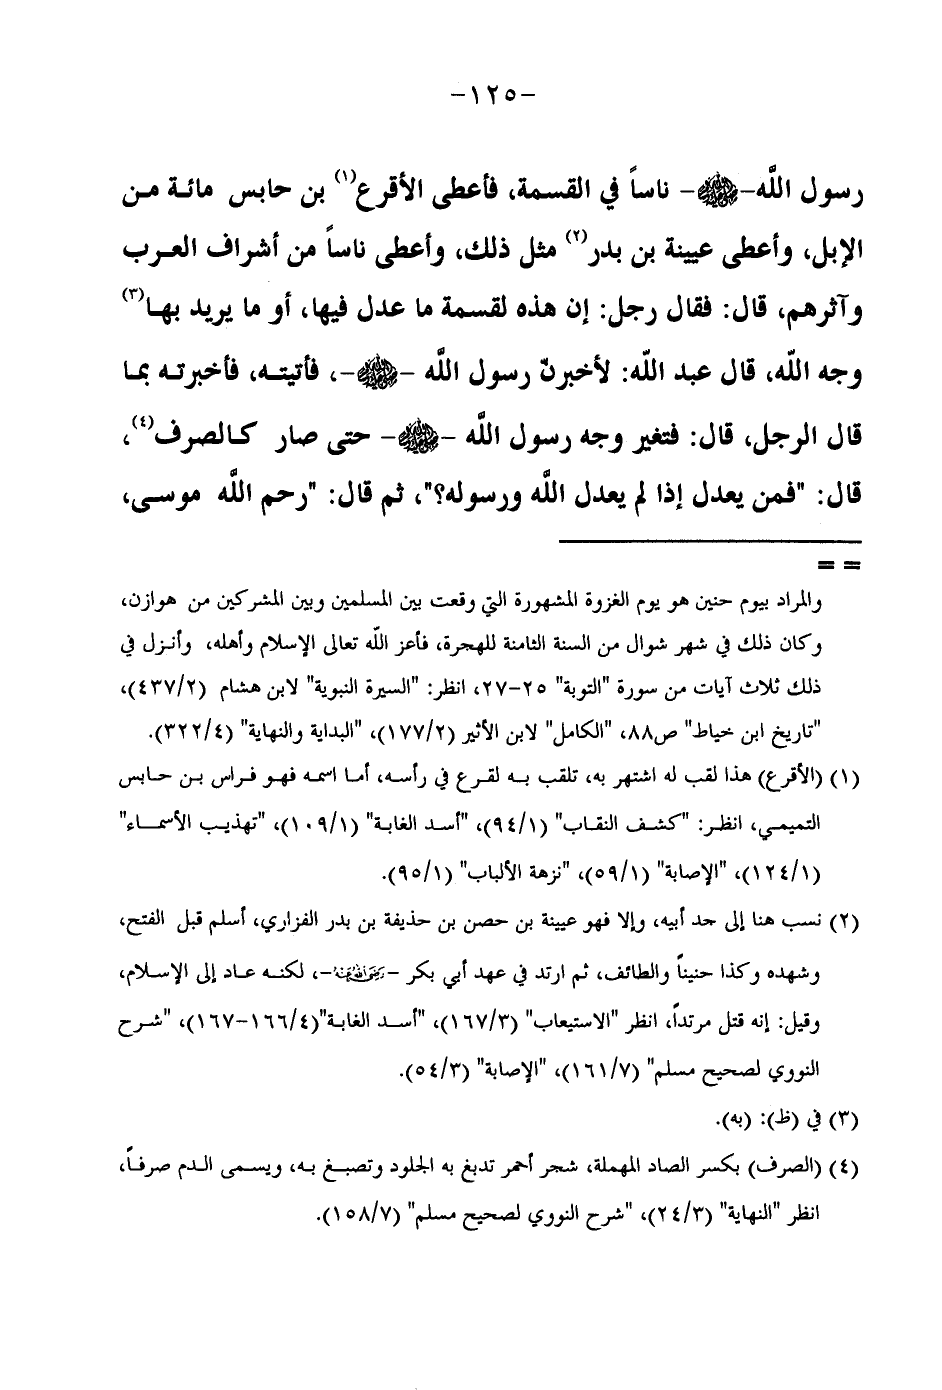 -١٢٥-
رسول اللَّه-ﷺ- ناساً في القسمة، فأعطى الأقرع(١) بن حابس مائة من
الإبل، وأعطى عيينة بن بدر(٢) مثل ذلك، وأعطى ناساً من أشراف العرب
وآثرهم، قال: فقال رجل: إن هذه لقسمة ما عدل فيها، أو ما يريد بها(٣)
وجه اللَّه، قال عبد اللَّه: لأخبرنّ رسول اللَّه -ﷺ-، فأتيته، فأخبرته بما
قال الرجل، قال: فتغير وجه رسول اللَّه -ﷺ- حتى صار كالصرف(٤)،
قال: "فمن يعدل إذا لم يعدل اللَّه ورسوله؟"، ثم قال: "رحم اللَّه موسى،
= =
والمراد بيوم حنين هو يوم الغزوة المشهورة التي وقعت بين المسلمين وبين المشركين من هوازن،
وكان ذلك في شهر شوال من السنة الثامنة للهجرة، فأعز اللَّه تعالى الإسلام وأهله، وأنزل في
ذلك ثلاث آيات من سورة "التوبة" ٢٥-٢٧، انظر: "السيرة النبوية" لابن هشام (٤٣٧/٢)،
"تاريخ ابن خياط" ص٨٨، "الكامل" لابن الأثير (١٧٧/٢)، "البداية والنهاية" (٣٢٢/٤).
(١) (الأقرع) هذا لقب له اشتهر به، تلقب به لقرع في رأسه، أما اسمه فهو فراس بن حابس
التميمي، انظر: "كشف النقاب" (٩٤/١)، "أسد الغابة" (١٠٩/١)، "تهذيب الأسماء"
(١٢٤/١)، "الإصابة" (٥٩/١)، "نزهة الألباب" (٩٥/١).
(٢) نسب هنا إلى جد أبيه، وإلا فهو عيينة بن حصن بن حذيفة بن بدر الفزاري، أسلم قبل الفتح،
وشهده وكذا حنيناً والطائف، ثم ارتد في عهد أبي بكر -رضي الله عنه-، لكنه عاد إلى الإسلام،
وقيل: إنه قتل مرتداً، انظر "الاستيعاب" (١٦٧/٣)، "أسد الغابة"(١٦٦/٤-١٦٧)، "شرح
النووي لصحيح مسلم" (١٦١/٧)، "الإصابة" (٥٤/٣).
(٣) في (ظ): (به).
(٤) (الصرف) بكسر الصاد المهملة، شجر أحمر تدبغ به الجلود وتصبغ به، ويسمى الدم صرفاً،
انظر "النهاية" (٢٤/٣)، "شرح النووي لصحيح مسلم" (١٥٨/٧).